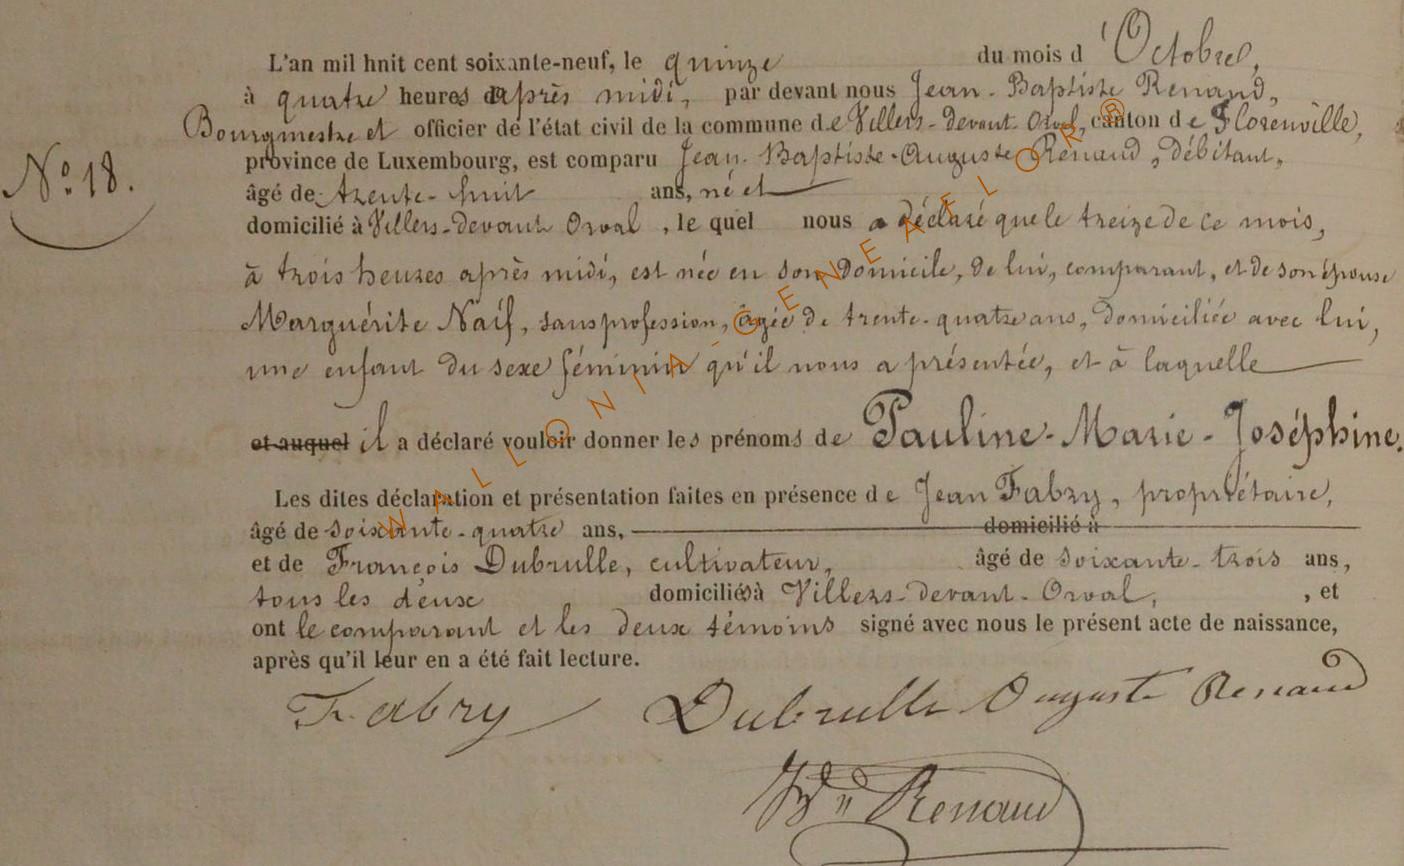 L'an mil huit cent soixante-neuf, le quinze du mois d'Octobre,
à quatre heures après midi, par devant nous Jean-Baptiste Renaud,
Bourgmestre et officier de l'état civil de la commune de Villers-devant-Orval, canton de Florenville,
N° 18.
province de Luxembourg, est comparu Jean-Baptiste-Auguste Renaud, débitant,
âgé de trente-huit ans, né et
domicilié à Villers-devant Orval, le quel nous a déclaré que le treize de ce mois,
à trois heures après midi, est née en son domicile, de lui, comparant, et de son épouse
Marguérite Naif, sans profession, âgée de trente-quatre ans, domiciliée avec lui,
une enfant du sexe féminin qu'il nous a présentée, et à laquelle
et auquel il a déclaré vouloir donner les prénoms de Pauline-Marie-Joséphine.
Les dites déclaration et présentation faites en présence de Jean Fabry, propriétaire,
âgé de soixante-quatre ans, domicilié à
et de François Dubrulle, cultivateur, âgé de soixante-trois ans,
tous les deux domiciliés à Villers-devant-Orval, , et
ont le comparant et les deux témoins signé avec nous le présent acte de naissance,
après qu'il leur en a été fait lecture.
Fabry Dubrulle Auguste Renaud
Renaud
WALLONIA-GENEAFLOR®